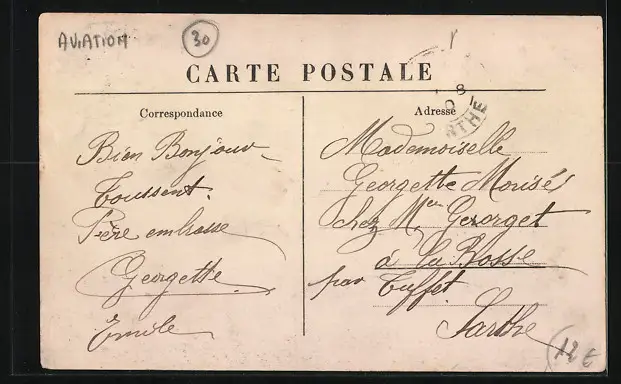 AVIATION
30
CARTE POSTALE
Correspondance
Bien Bonjour
Toussent.
Père embrasse
Georgette
Emile
Adresse
8
RTHE
Mademoiselle
Georgette
chez Mr Georget
à la Bosse
par Tuffet
Sarthe
12€